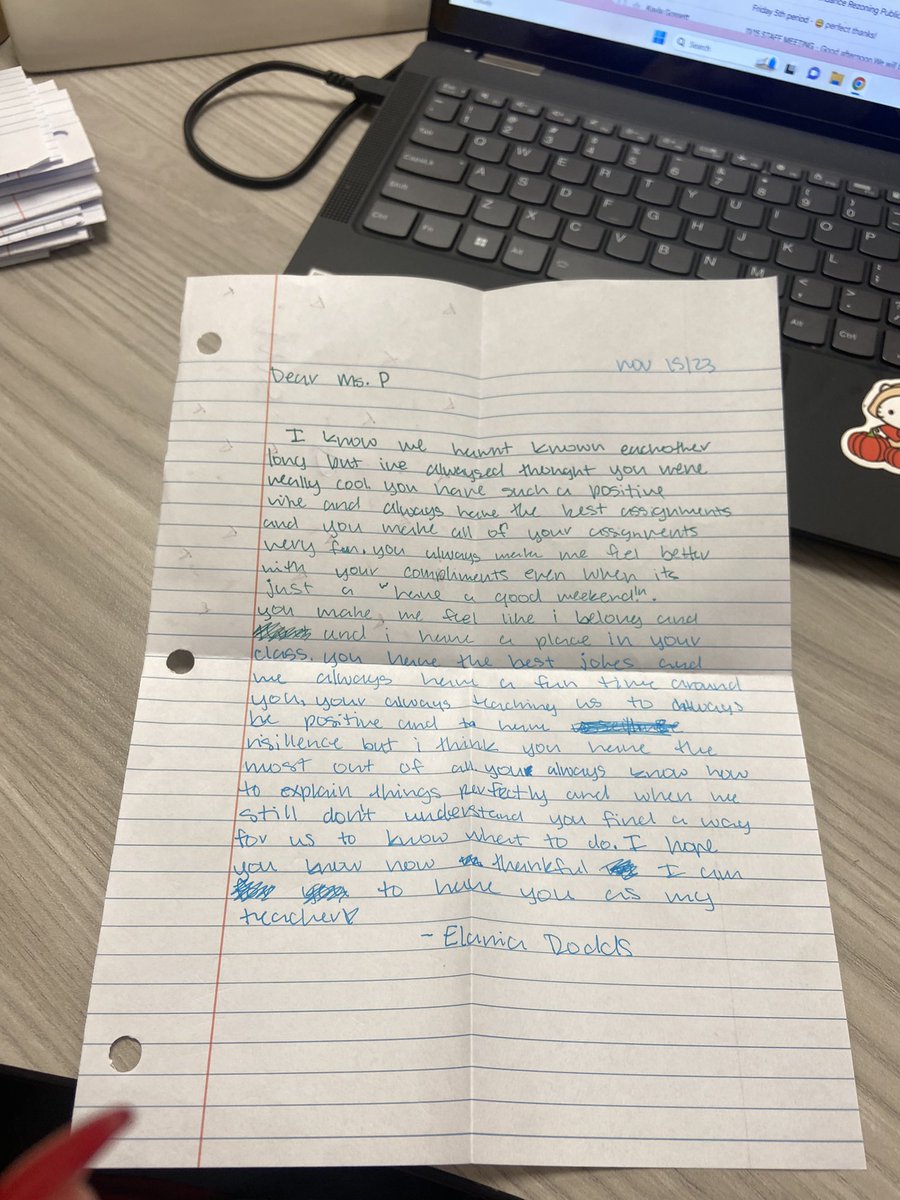 dance Rezoning Public
Friday 5th period - 😄 perfect thanks!
11/15 STAFF MEETING - Good afternoon We will
Search
nov 15/23
Dear Ms. P
I know we havnt known eachother
long but ive alwaysed thought you were
really cool, you have such a positive
vibe and always have the best assignments
and you make all of your assignments
very fun. you always make me feel better
with your compliments even when its
just a "have a good weekend!".
you make me feel like i belong and
and i have a place in your
class. you have the best jokes and
we always have a fun time around
you, your always teaching us to always
be positive and to have
risillence but i think you have the
most out of all, you always know how
to explain things perfectly and when we
still don't understand you find a way
for us to know what to do. I hope
you know how thankful I am
to have you as my
teacher♡
- Elania Dodds